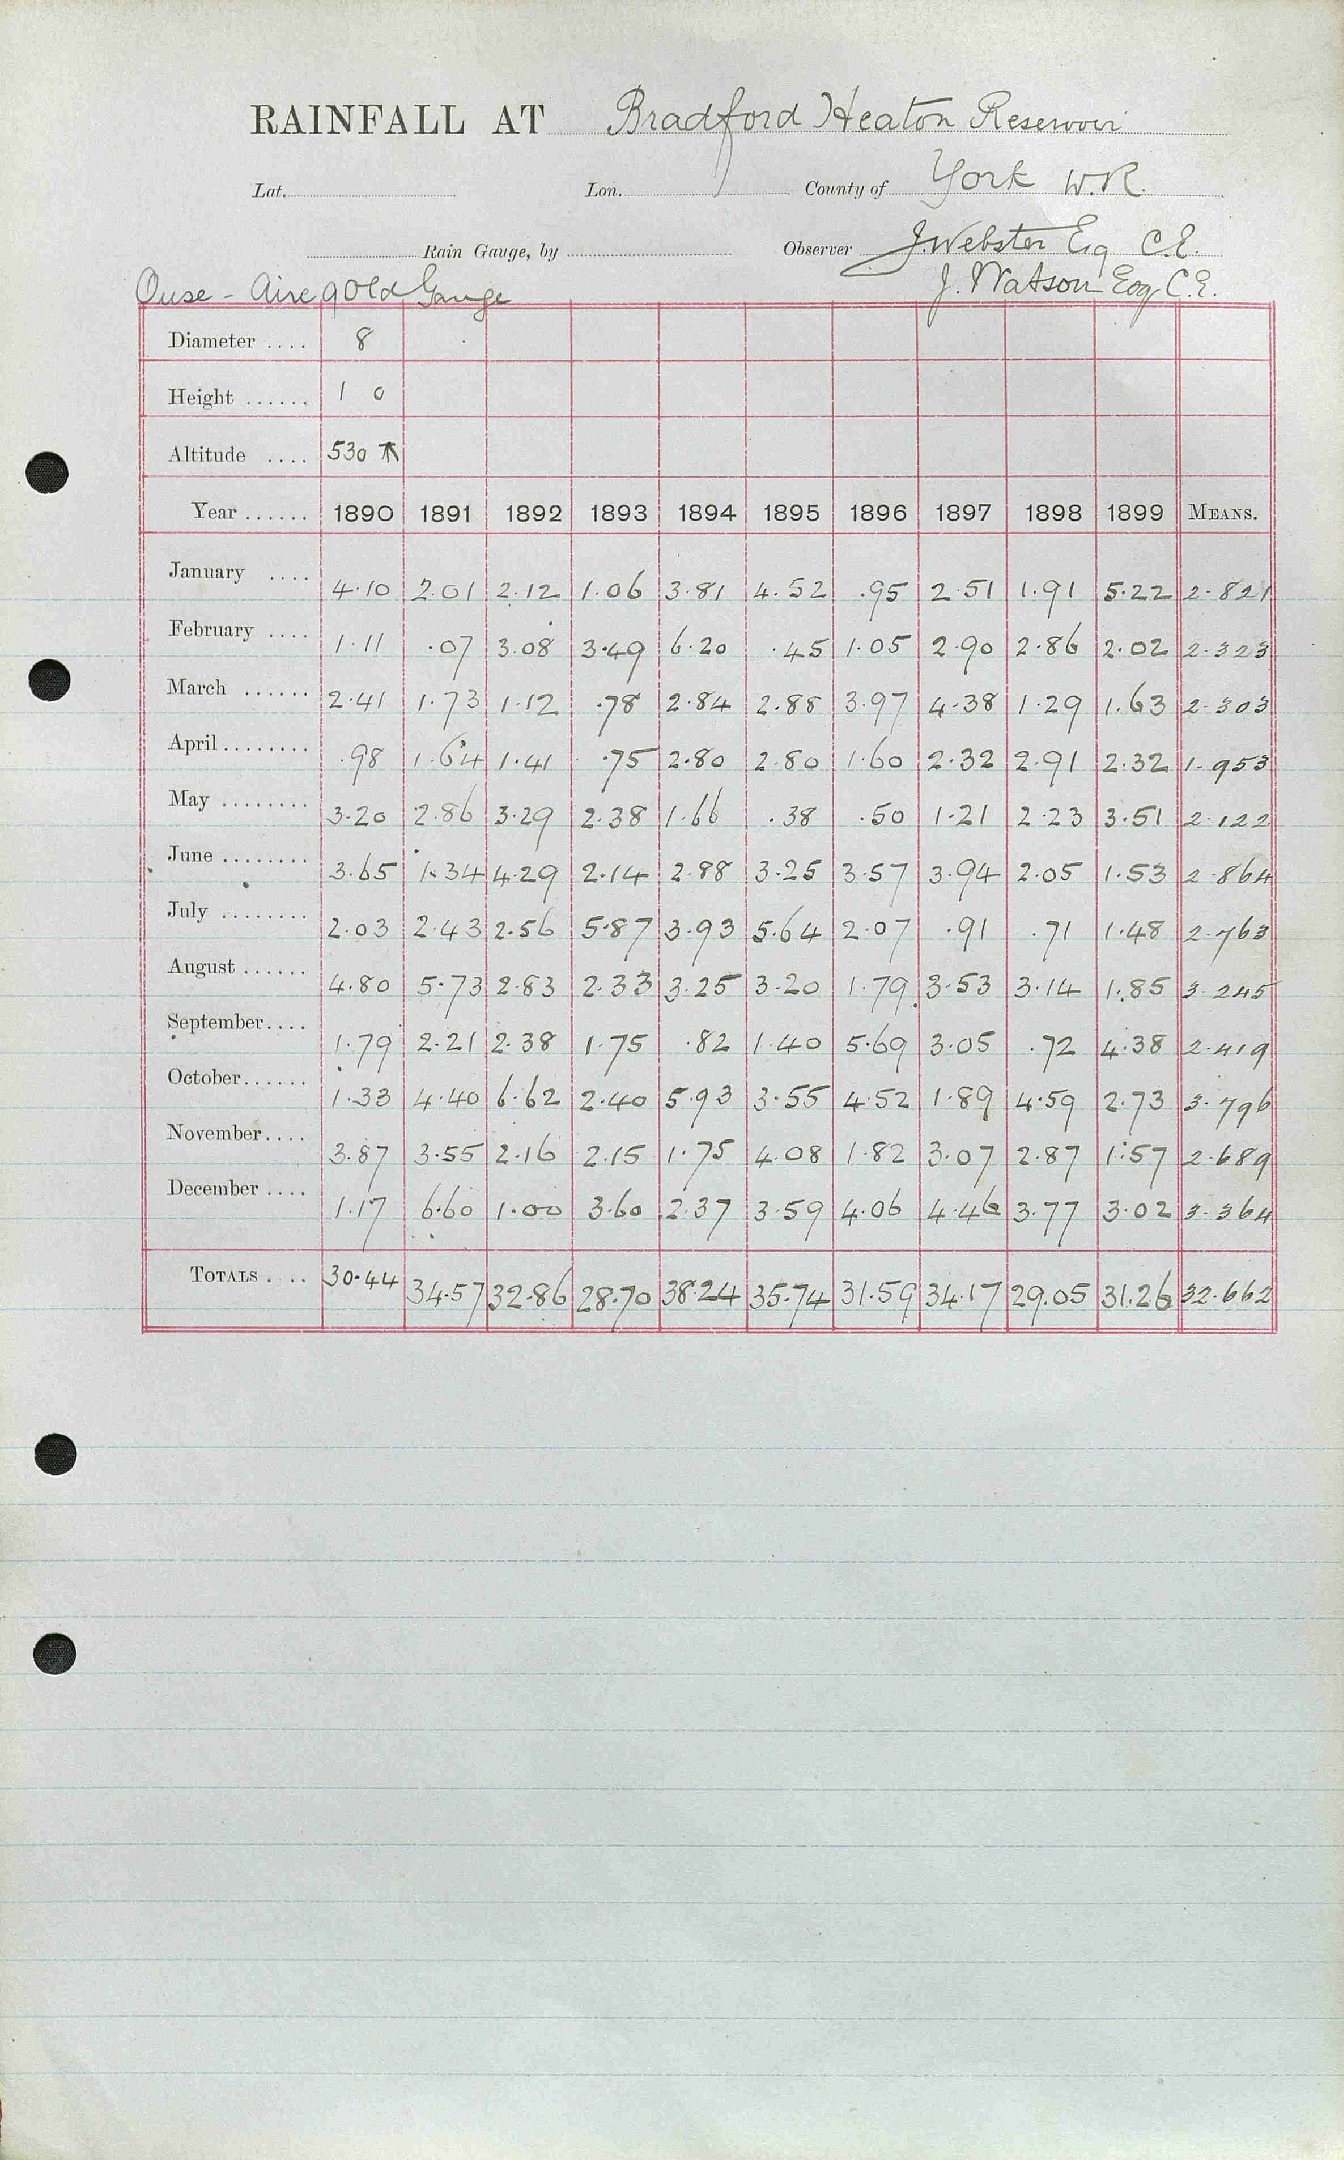 RAINFALL AT Bradford Heaton Reservoir
Lat. Lon. County of York W.R.
Rain Gauge, by Observer J. Webster Esq C.E.
Ouse - Aire 9 Old Gauge J. Watson Esq C.E.
Diameter .... 8
Height ...... 1 0
Altitude .... 530 ↑
Year ...... 1890 1891 1892 1893 1894 1895 1896 1897 1898 1899 MEANS.
January .... 4.10 2.01 2.12 1.06 3.81 4.52 .95 2.51 1.91 5.22 2.821
February .... 1.11 .07 3.08 3.49 6.20 .45 1.05 2.90 2.86 2.02 2.323
March ...... 2.41 1.73 1.12 .78 2.84 2.88 3.97 4.38 1.29 1.63 2.303
April ........ .98 1.64 1.41 .75 2.80 2.80 1.60 2.32 2.91 2.32 1.953
May ........ 3.20 2.86 3.29 2.38 1.66 .38 .50 1.21 2.23 3.51 2.122
June ........ 3.65 1.34 4.29 2.14 2.88 3.25 3.57 3.94 2.05 1.53 2.864
July ........ 2.03 2.43 2.56 5.87 3.93 5.64 2.07 .91 .71 1.48 2.763
August ...... 4.80 5.73 2.83 2.33 3.25 3.20 1.79 3.53 3.14 1.85 3.245
September .... 1.79 2.21 2.38 1.75 .82 1.40 5.69 3.05 .72 4.38 2.419
October ...... 1.33 4.40 6.62 2.40 5.93 3.55 4.52 1.89 4.59 2.73 3.796
November .... 3.87 3.55 2.16 2.15 1.75 4.08 1.82 3.07 2.87 1.57 2.689
December .... 1.17 6.60 1.00 3.60 2.37 3.59 4.06 4.46 3.77 3.02 3.364
TOTALS .... 30.44 34.57 32.86 28.70 38.24 35.74 31.59 34.17 29.05 31.26 32.662